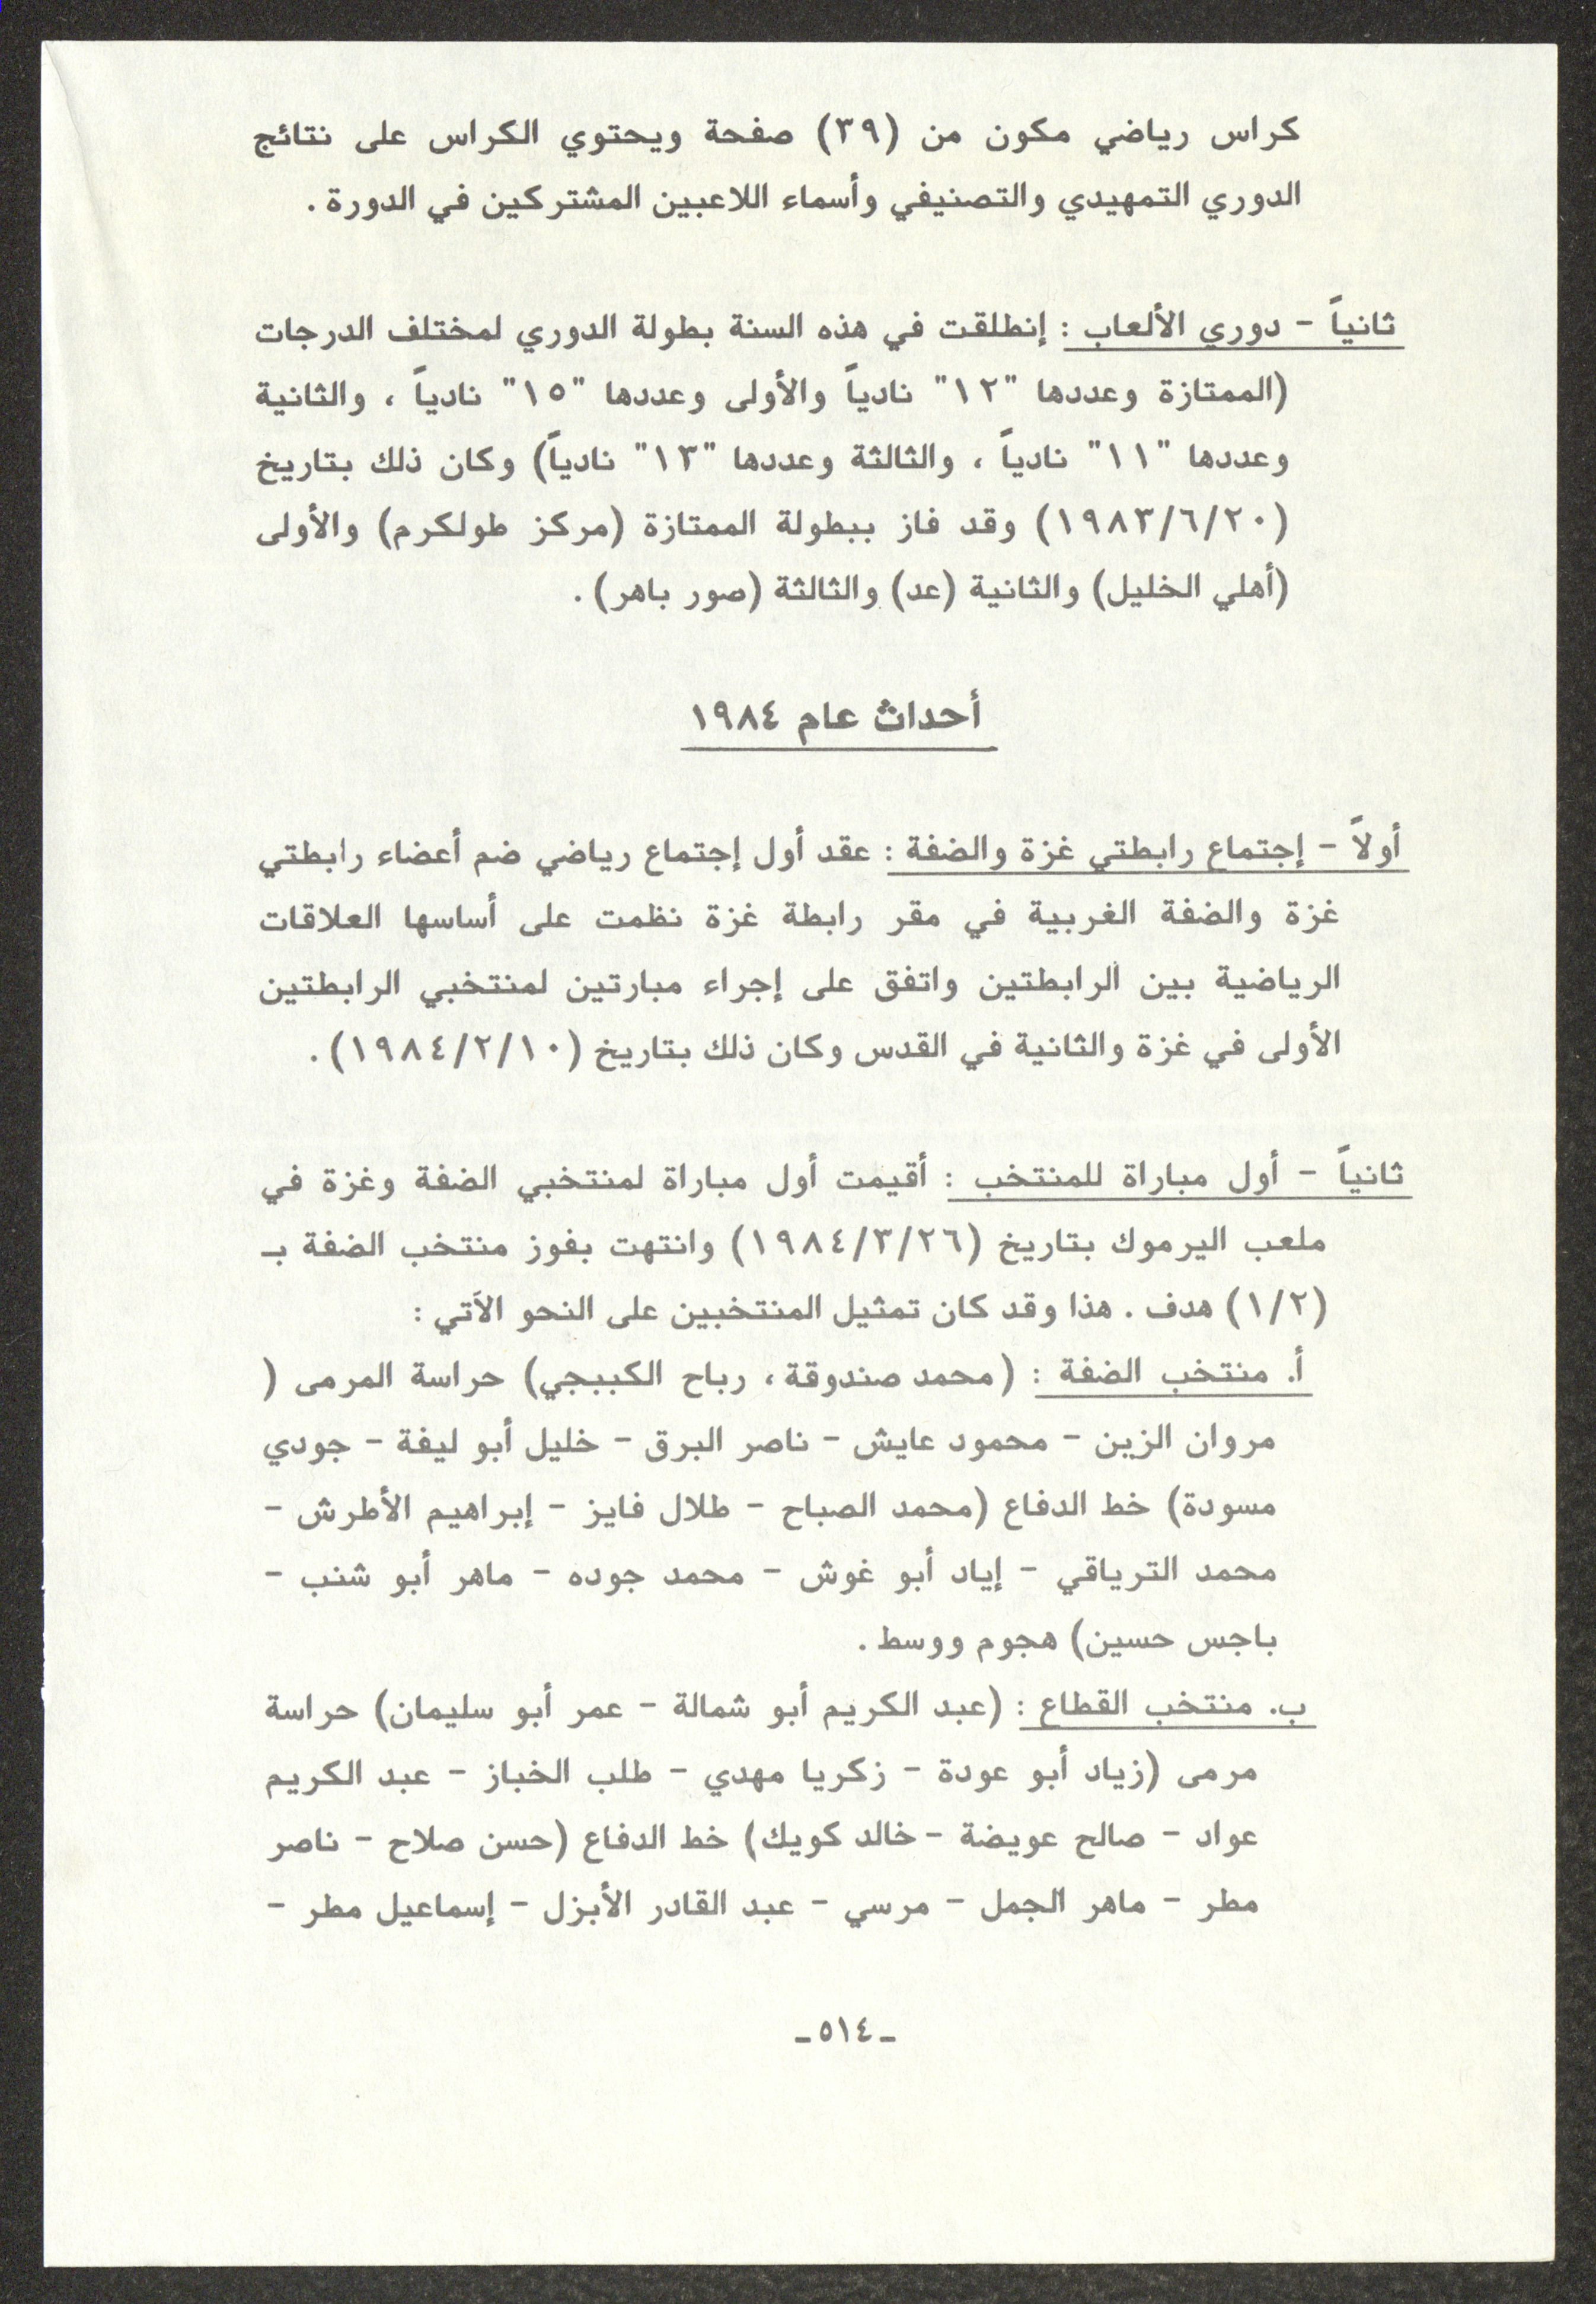 كراس رياضي مكون من (٣٩) صفحة ويحتوي الكراس على نتائج
الدوري التمهيدي والتصنيفي وأسماء اللاعبين المشتركين في الدورة .
ثانياً - دوري الألعاب : إنطلقت في هذه السنة بطولة الدوري لمختلف الدرجات
(الممتازة وعددها "١٢" نادياً والأولى وعددها "١٥" نادياً ، والثانية
وعددها "١١" نادياً ، والثالثة وعددها "١٣" نادياً) وكان ذلك بتاريخ
(١٩٨٣/٦/٢٠) وقد فاز ببطولة الممتازة (مركز طولكرم) والأولى
(أهلي الخليل) والثانية (عد) والثالثة (صور باهر) .
أحداث عام ١٩٨٤
أولاً - إجتماع رابطتي غزة والضفة : عقد أول إجتماع رياضي ضم أعضاء رابطتي
غزة والضفة الغربية في مقر رابطة غزة نظمت على أساسها العلاقات
الرياضية بين الرابطتين واتفق على إجراء مبارتين لمنتخبي الرابطتين
الأولى في غزة والثانية في القدس وكان ذلك بتاريخ (١٩٨٤/٢/١٠) .
ثانياً - أول مباراة للمنتخب : أقيمت أول مباراة لمنتخبي الضفة وغزة في
ملعب اليرموك بتاريخ (١٩٨٤/٣/٢٦) وانتهت بفوز منتخب الضفة بـ
(١/٢) هدف . هذا وقد كان تمثيل المنتخبين على النحو الآتي :
أ. منتخب الضفة : (محمد صندوقة ، رباح الكببجي) حراسة المرمى (
مروان الزين - محمود عايش - ناصر البرق - خليل أبو ليفة - جودي
مسودة) خط الدفاع (محمد الصباح - طلال فايز - إبراهيم الأطرش -
محمد الترياقي - إياد أبو غوش - محمد جوده - ماهر أبو شنب -
باجس حسين) هجوم ووسط .
ب. منتخب القطاع : (عبد الكريم أبو شمالة - عمر أبو سليمان) حراسة
مرمى (زياد أبو عودة - زكريا مهدي - طلب الخباز - عبد الكريم
عواد - صالح عويضة - خالد كويك) خط الدفاع (حسن صلاح - ناصر
مطر - ماهر الجمل - مرسي - عبد القادر الأبزل - إسماعيل مطر -
-٥١٤-